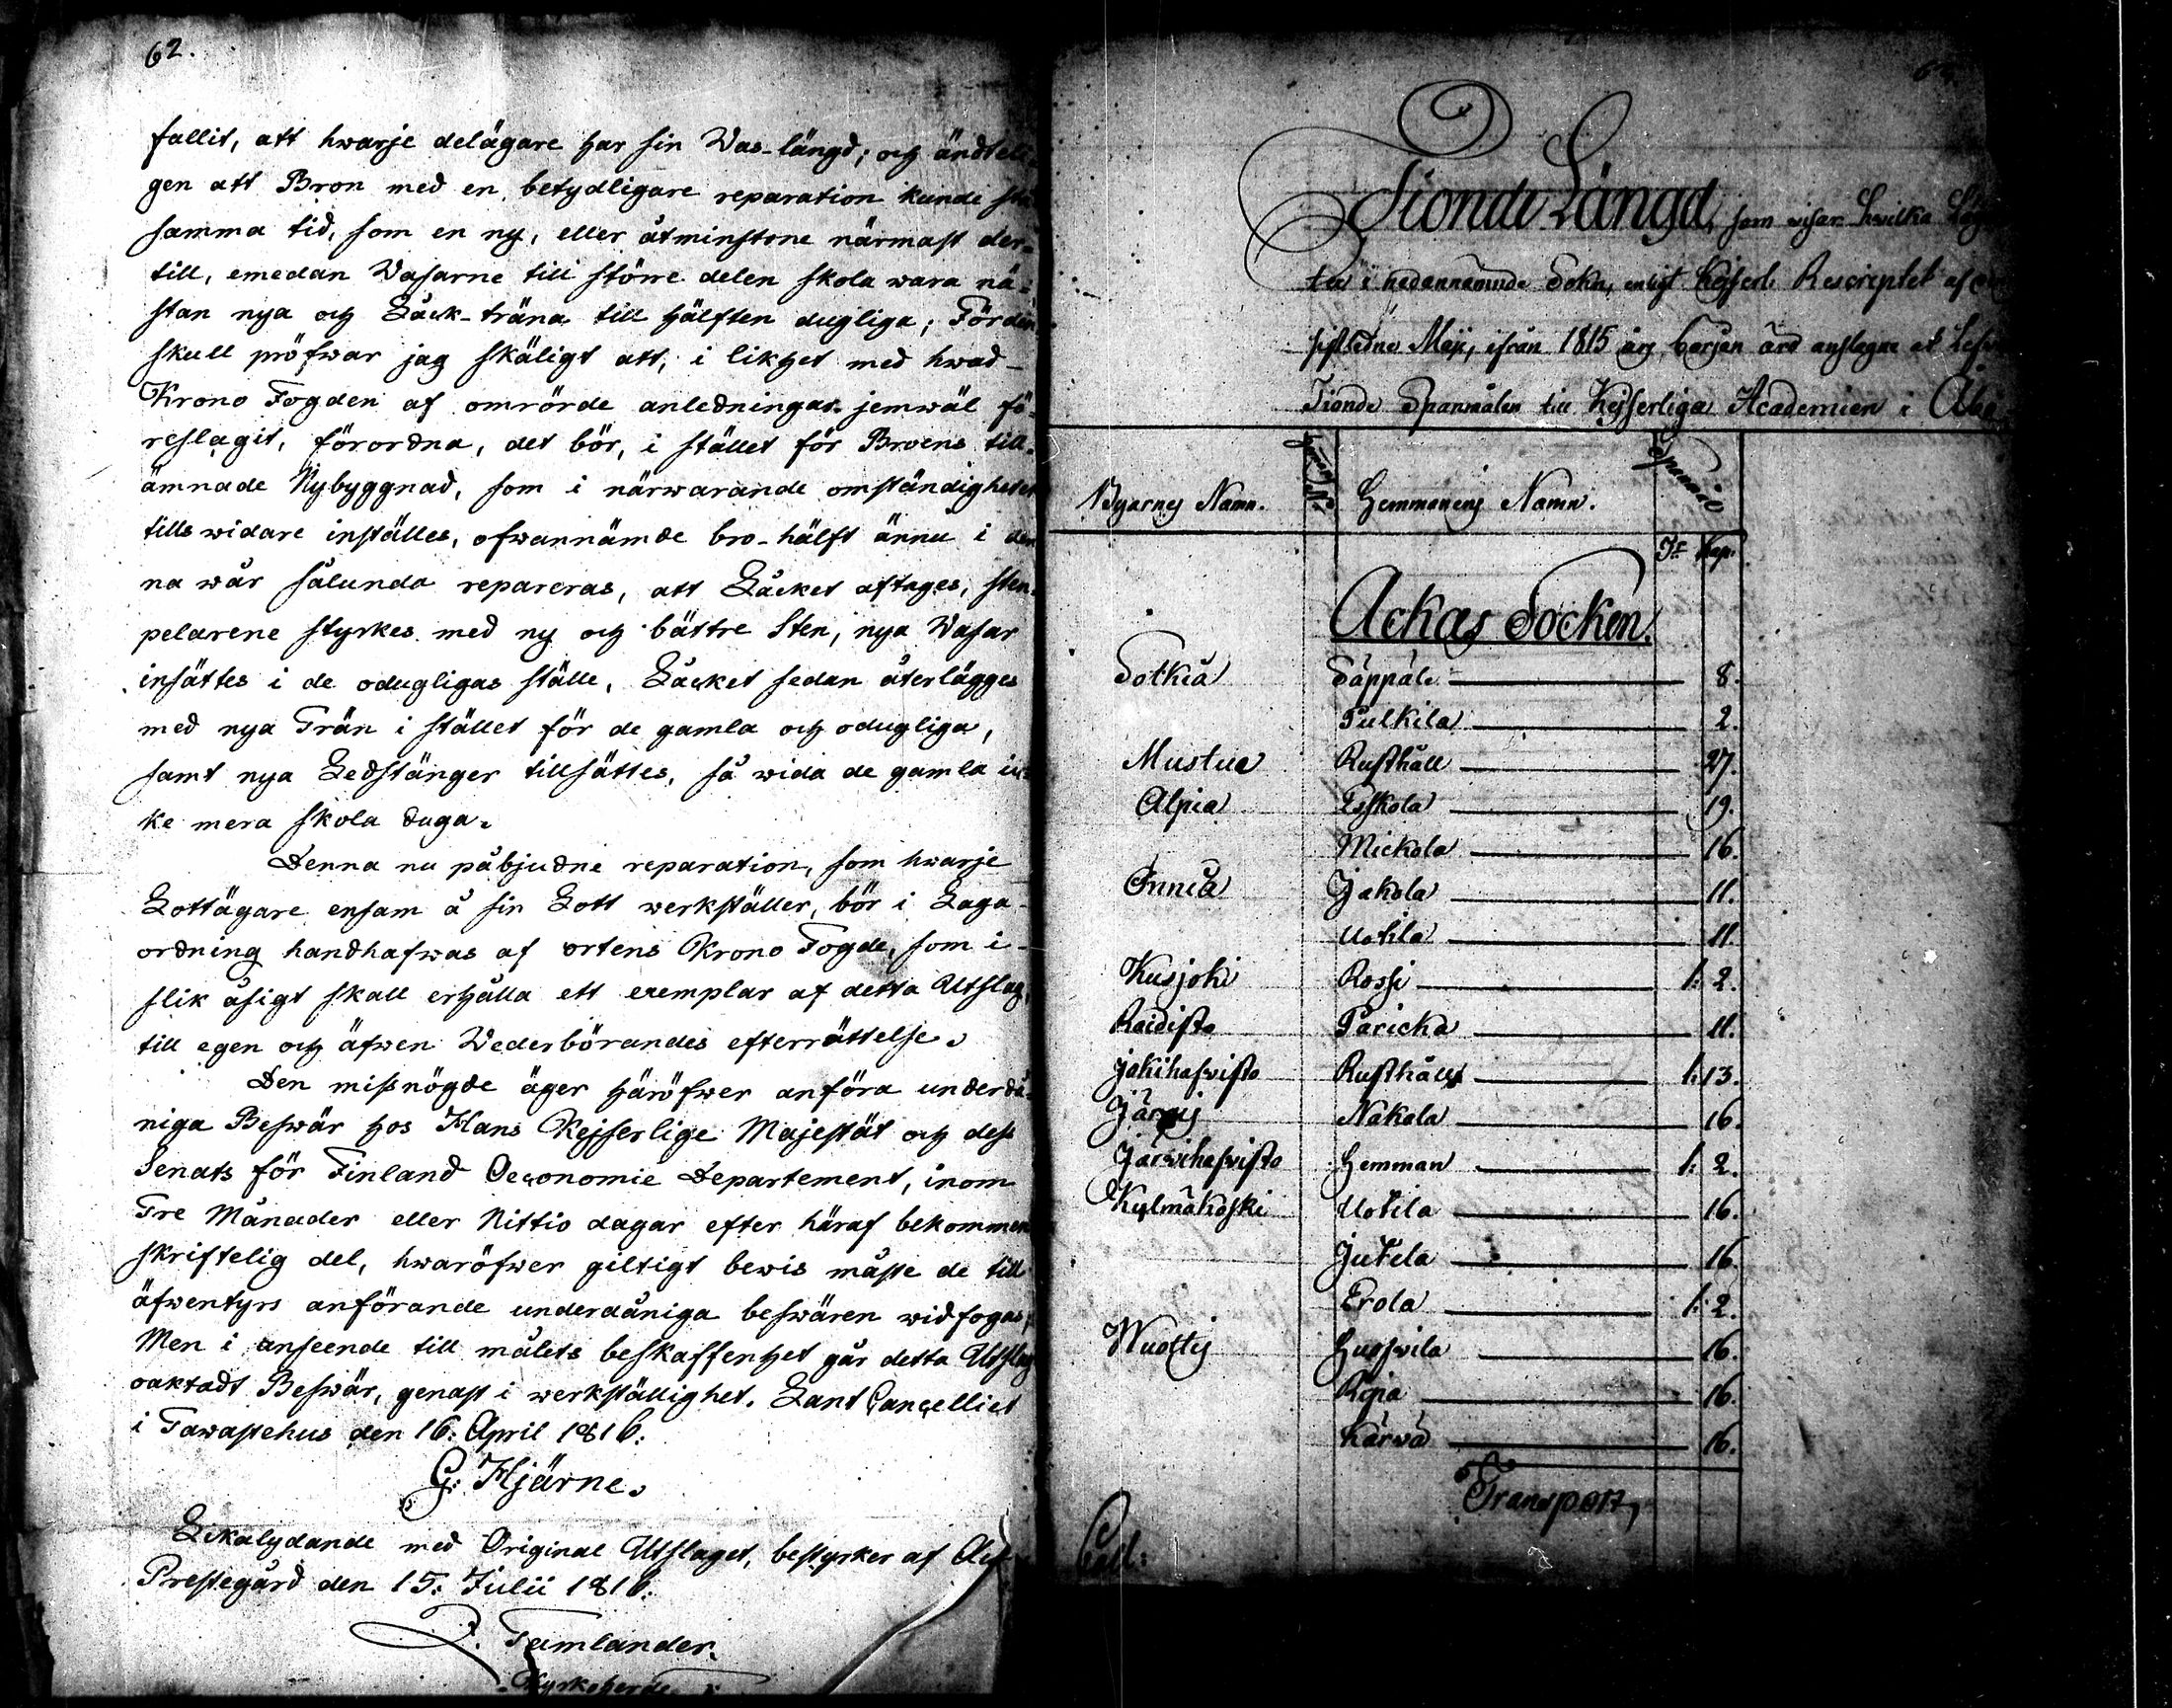 62.
fallit, att hwarje delägare har sin Was-längd; och ändteli-
gen att Bron med en betydligare reparation kunde stå
samma tid, som en ny, eller åtminstone närmast der-
till, emedan Wasarne till större delen skola wara nä-
stan nya och Låck-träna till hälften dugliga; Fördens
skull pröfwar jag skäligt att, i likhet med hwad
Krono Fogden af omrörde anledningar jemwäl fö-
reslagit, förordna, det bör, i stället för Broens till-
ämnade Nybyggnad, som i närwarande omständigheter
tills widare inställes, ofwannämde bro-hälft ännu i den-
na wår sålunda repareras, att Låcket aftages, sten-
pelarene styrkes med ny och bättre Sten, nya Wasar
insättes i de odugligas ställe, Låcket sedan återlägges
med nya Trän i stället för de gamla och odugliga,
samt nya Ledstänger tillsättes, så wida de gamla ic-
ke mera skola duga.
Denna nu påbjudne reparation, som hwarje
Lottägare ensam å sin Lott werkställer, bör i Laga
ordning handhafwas af ortens Krono Fogde, som i
slik åsigt skall erhålla ett exemplar af detta Utslag,
till egen och äfwen Wederbörandes efterrättelse.
Den missnögde äger häröfwer anföra underdå-
niga Beswär hos Hans Kejserlige Majestät och dess
Senats för Finland Oeconomie Departement, inom
Tre Månader eller Nittio dagar efter häraf bekommen
skriftelig del, hwaröfwer giltigt bewis måste de till
äfwentyrs anförande underdåniga beswären widfogas;
Men i anseende till målets beskaffenhet går detta Utslag
oaktadt Beswär, genast i werkställighet. Lant Cancelliet
i Tawastehus den 16. April 1816.
G. Hjärne.
Likalydande med Original Utslaget, bestyrker af
Prestegård den 15. Julii 1816.
Tamlander.
Kyrkoherde
Tionde Längd, som wisar hwilka
i nedannämnde Sokn, enligt Kejserl. Rescriptet af
sistledne Maji, ifrån 1815 års början äro anslagne at
Tionde Spanmålen till Kejserliga Academien i Åbo
Byarnes Namn. Hemmanens Namn. Spanmål
Tr Kap.
Ackas Socken.
Sotkia Säppälä 8.
Tulkila 2.
Mustue Rusthåll 27.
Alpia Eskola 19.
Mickola 16.
Onnia Jakola 11.
Uotila 11.
Kusjoki Rossi 1: 2.
Raidisto Paricka 11.
Jokihafwisto Rusthåll 1: 13.
Nakola 16.
Järwihafwisto Hemman 1: 2.
Kylmäkoski Uotila 16.
Jutela 16.
Erola 1: 2.
Wuottis Huoswila 16.
Ripia 16.
Kärwä 16.
Transport,